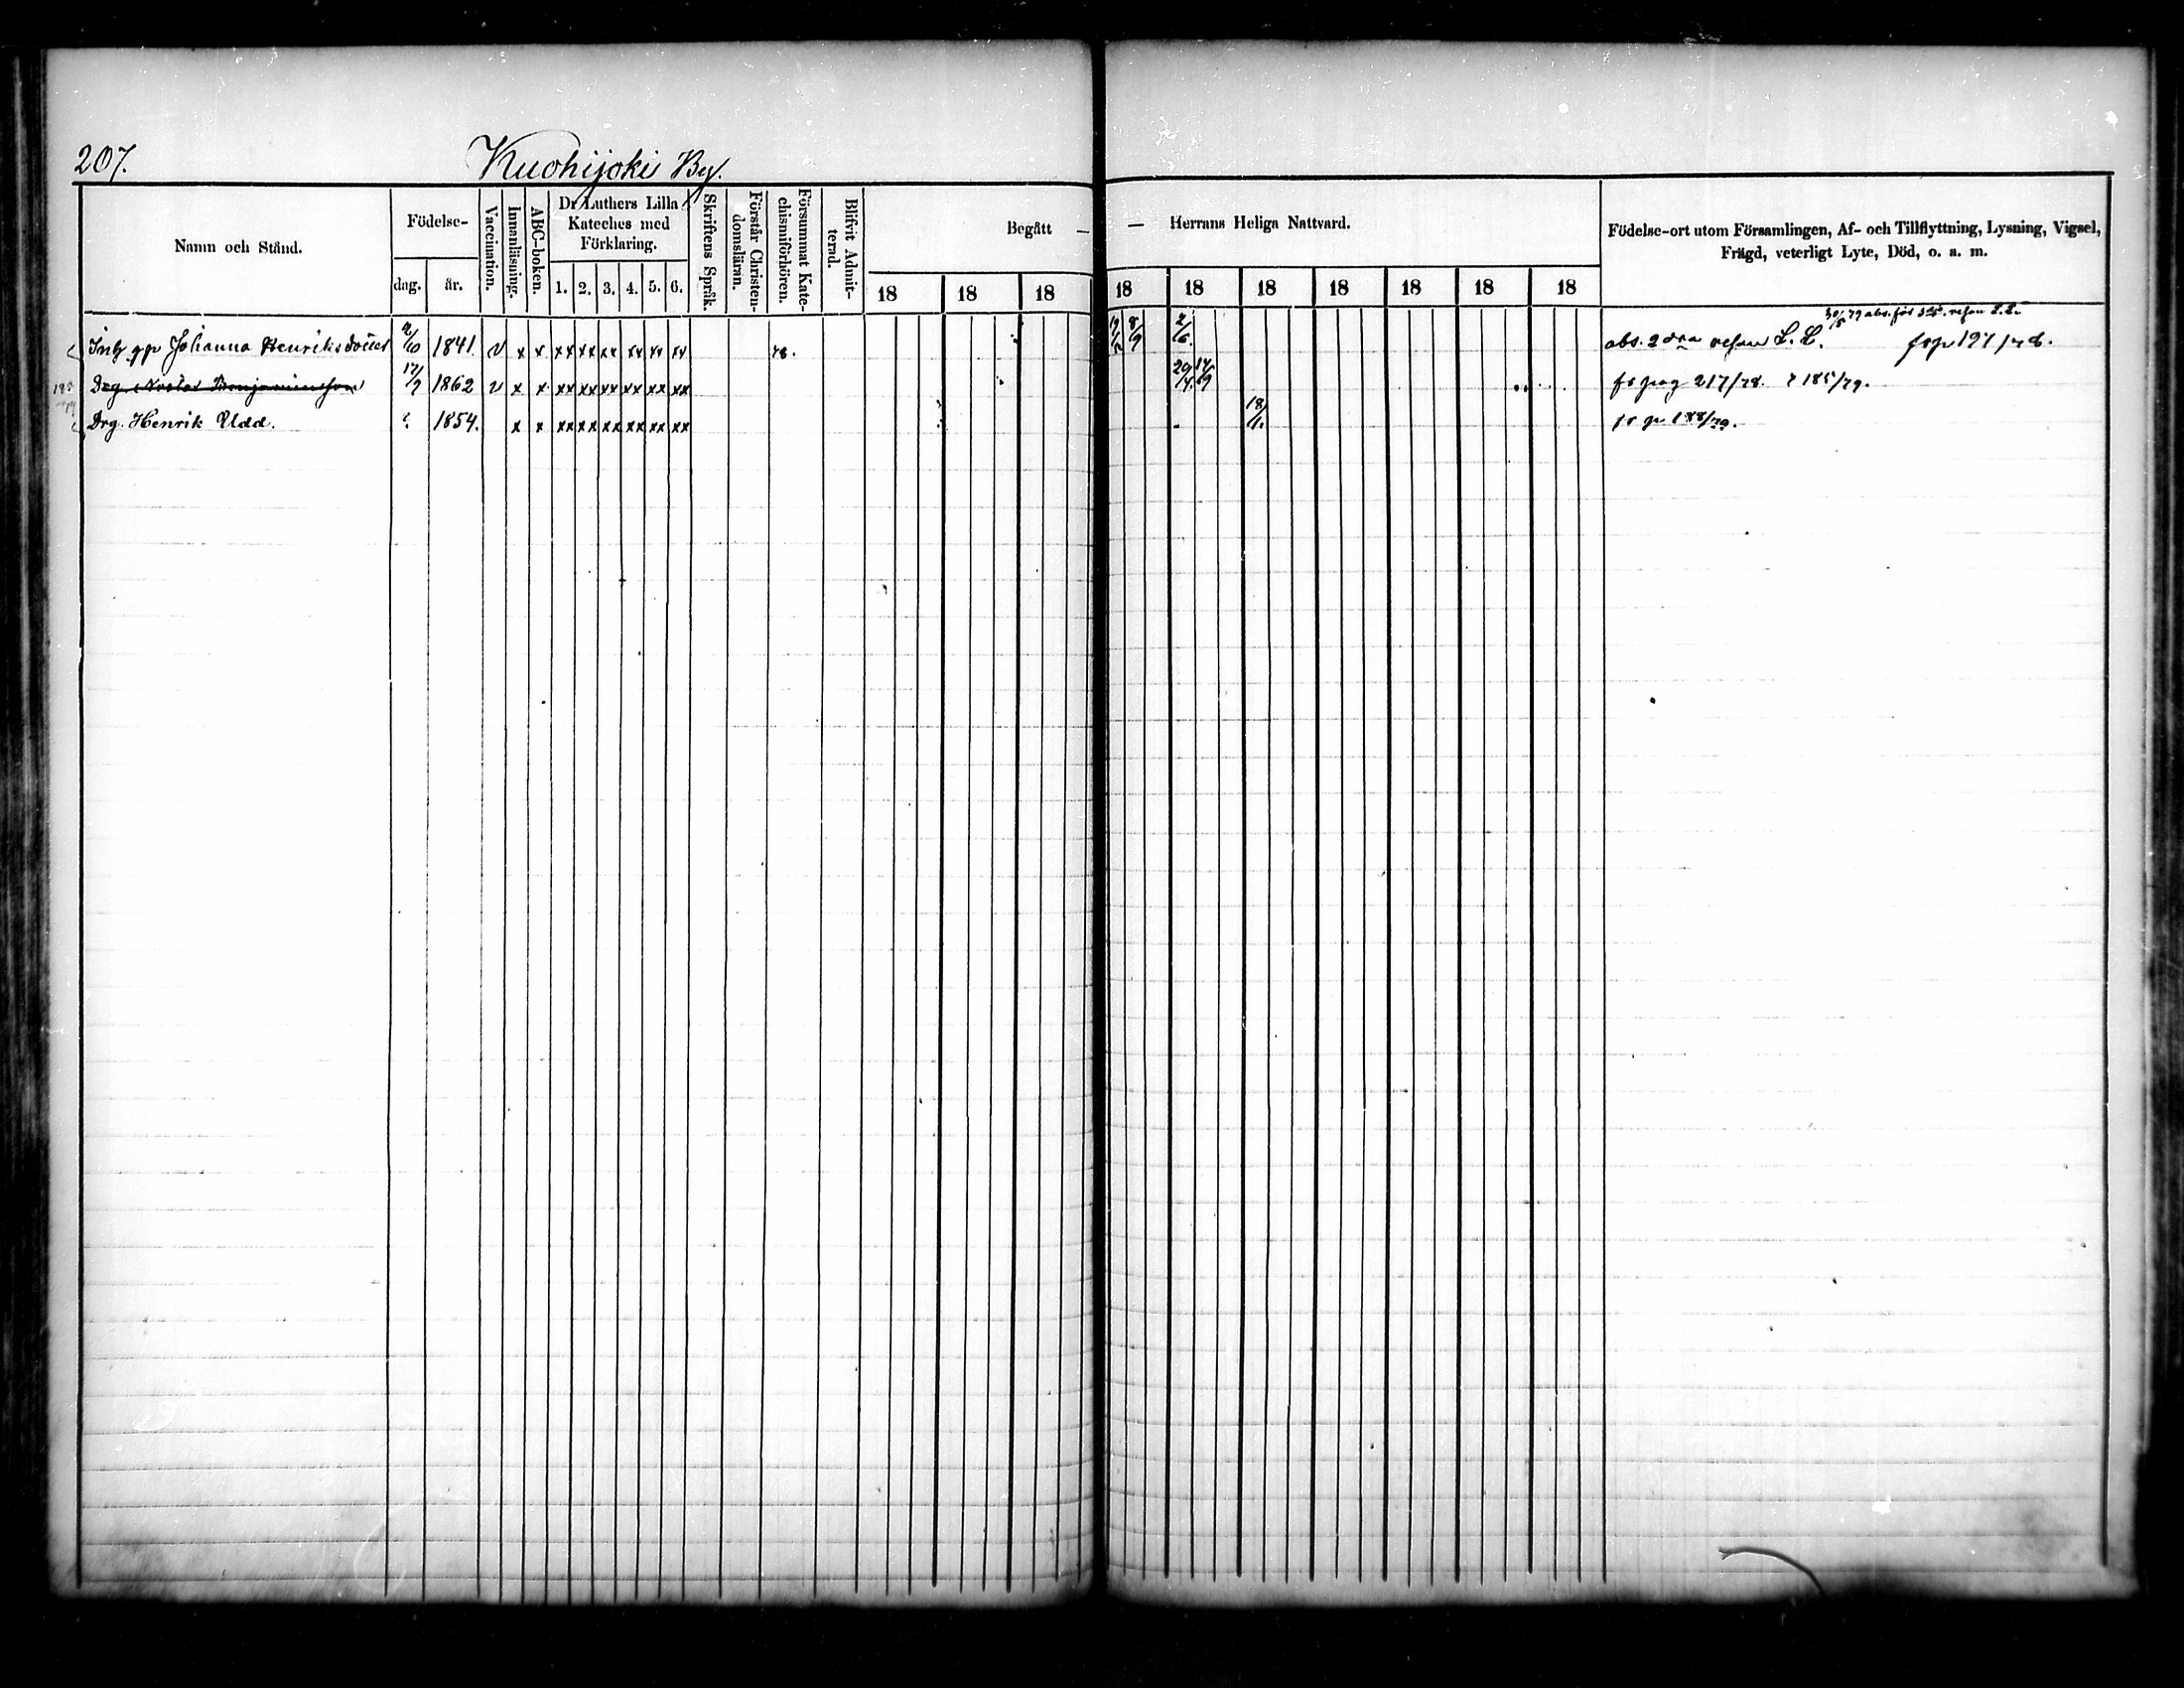 207.
Kuohijoki By.
Namn och Stånd.
Födelse-
dag.
år.
Vaccination.
Innanläsning.
ABC-boken.
Dr Luthers Lilla
Kateches med
Förklaring.
1. 2. 3. 4. 5. 6.
Skriftens Språk.
Förstår Christen-
domsläran.
Försummat Kate-
chismiförhören.
Blifvit Admit-
terad.
Begått —
— Herrans Heliga Nattvard.
18 18 18 18 18 18 18 18 18 18
Födelse-ort utom Församlingen, Af- och Tillflyttning, Lysning, Vigsel,
Frägd, veterligt Lyte, Död, o. a. m.
Johanna Henriksdotter 2/10 1841. v x x xx xx xx xx xx xx 78. 8/9 2/6. obs. 2dra resan L. L. frp 197/78.
Drg. Benjaminsson 17/9 1862 v x x xx xx xx xx xx xx fr pag 217/78. 185/79.
Drg. Henrik Udd. 1854. x x xx xx xx xx xx xx 18/1. fr p 188/79.